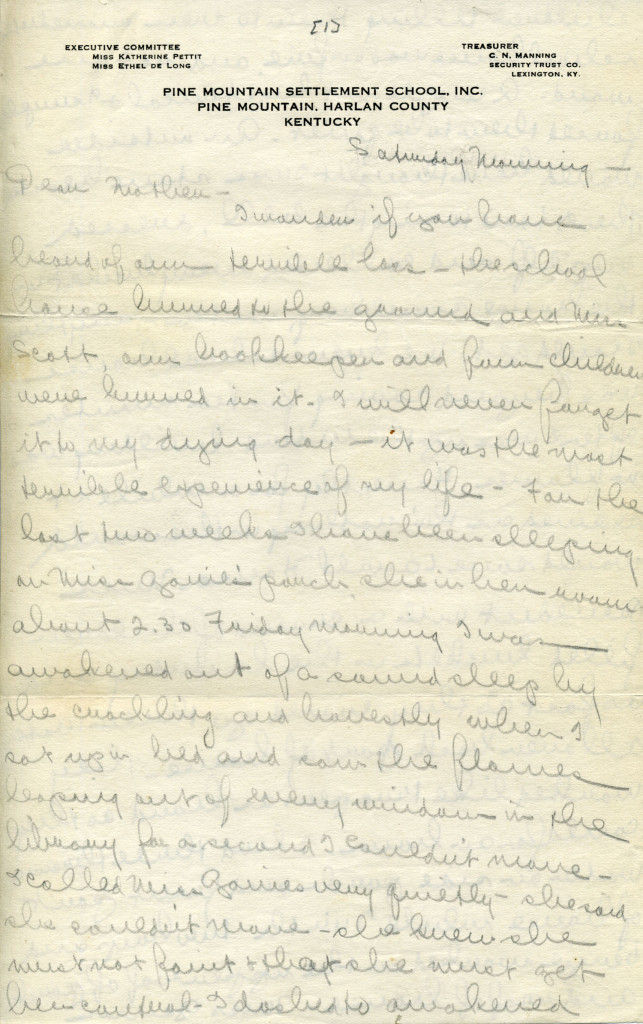 [1]
EXECUTIVE COMMITTEE
MISS KATHERINE PETTIT
MISS ETHEL DE LONG
TREASURER
C. N. MANNING
SECURITY TRUST CO.
LEXINGTON, KY.
PINE MOUNTAIN SETTLEMENT SCHOOL, INC.
PINE MOUNTAIN, HARLAN COUNTY
KENTUCKY
Saturday Morning —
Dear Mother —
I wonder if you have
heard of our terrible loss — the school
house burned to the ground and Miss
Scott, our bookkeeper and four children
were burned in it. I will never forget
it to my dying day — it was the most
terrible experience of my life — For the
last two weeks I have been sleeping
on Miss Gaines' porch, she in her room
about 2.30 Friday morning I was
awakened out of a sound sleep by
the crackling and honestly when I
sat up in bed and saw the flames
leaping out of every window in the
library for a second I couldn't move —
I called Miss Gaines very quietly — she said
she couldn't move — she knew she
must not faint & that she must get
her control — I dashed to awakened